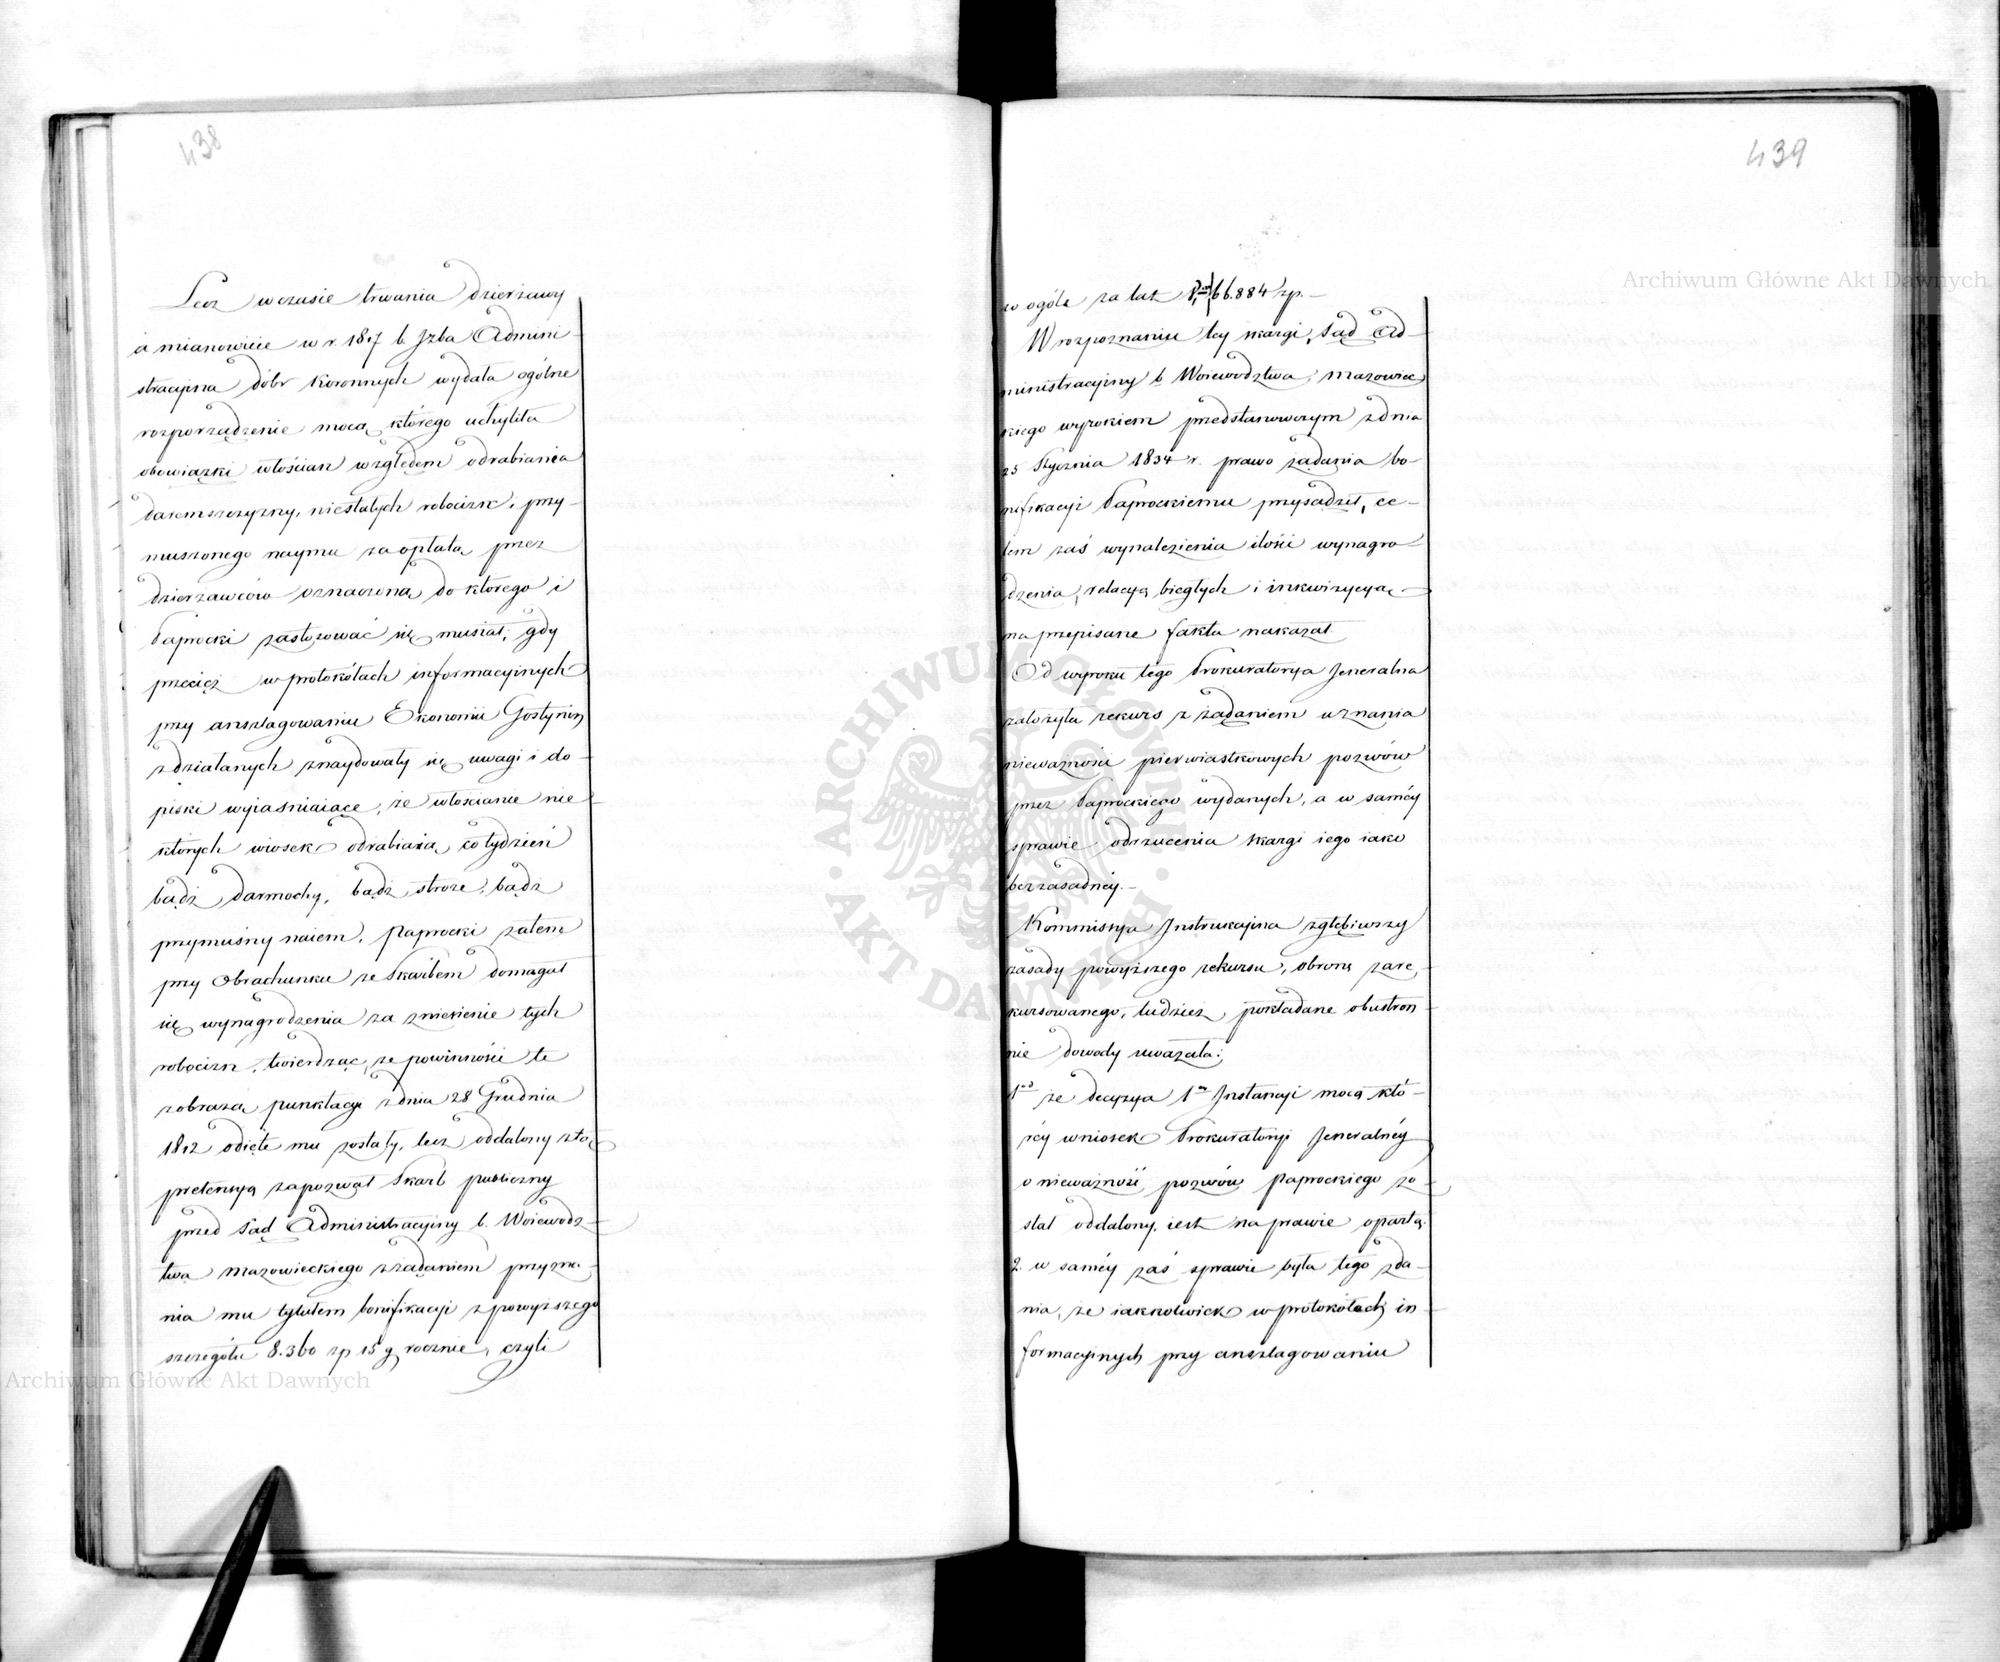 438
Lecz w czasie trwania dzierżawy
a mianowicie w r. 1807 b. Jzba Admini
stracyjna dóbr Koronnych wydała ogólne
rozporządzenie mocą którego uchyliła
obowiązki włościan względem odrabiania
daremszczyzny, niestałych robocizn, przy-
muszonego naymu za opłatą przez
dzierżawców oznaczoną do którego i
Paprocki zastosować się musiał, gdy
przecież w protokółach informacyinych
przy anszlagowaniu Ekonomii Gostynin
zdziałanych znaydowały się uwagi i do-
piski wyiaśniaiące, że włościanie nie
których wiosek odrabiaią co tydzień
bądź darmochy, bądź stróże, bądź
przymuśny naiem. Paprocki zatem
przy Obrachunku ze Skarbem domagał
się wynagrodzenia za zniesienie tych
robocizn, twierdząc, że powinności te
z obrazą punktacyi z dnia 28 Grudnia
1802 odięte mu zostały, lecz oddalony z tą
pretensyą zapozwał Skarb publiczny
przed Sąd Administracyiny b. Woiewodz-
twa Mazowieckiego z żądaniem przyzna-
nia mu tytułem bonifikacyi z powyższego
szczegółu 8.360 zp 15 g rocznie, czyli
439
w ogóle za lat 66.884 zp.
W rozpoznaniu tey skargi, Sąd Ad-
ministracyiny b. Woiewodztwa Mazowiec
kiego wyrokiem przedstanowczym z dnia
25 Stycznia 1834 r. prawo żądania bo-
nifikacyi Paprockiemu przysądził, ce-
lem zaś wynalezienia ilości wynagro-
dzenia, relacyą biegłych i inkwizycyą
na przepisane fakta nakazał.
Od wyroku tego Prokuratorya Jeneralna
założyła rekurs z żądaniem uznania
nieważności pierwiastkowych pozwów
przez Paprockiego wydanych, a w saméy
sprawie odrzucenia skargi iego iako
bezzasadnéy.
Kommissya Instrukcyina zgłębiwszy
zasady powyższego rekursu, obronę zare-
kursowanego, tudzież pokładane obustron-
nie dowody uważała:
1od że decyzya 1ey Instancyi mocą któ-
réy wniosek Prokuratoryi Jeneralnéy
o nieważność pozwów Paprockiego zo-
stał oddalony, iest na prawie opartą.
2. w saméy zaś sprawie była tego zda-
nia, że iakkolwiek w protokółach in-
formacyinych przy anszlagowaniu
Archiwum Główne Akt Dawnych
Archiwum Główne Akt Dawnych
ARCHIWUM GŁÓWNE · AKT DAWNYCH ·